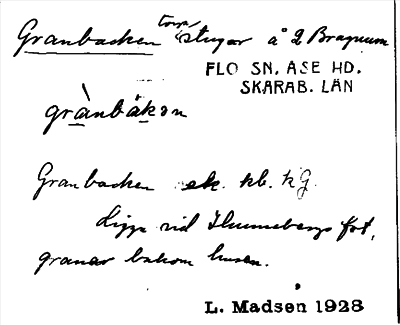 Granbacken torp stugor å 2 Bragnum
FLO SN. ÅSE HD.
SKARAB. LÄN
grànbàkən
Granbacken ek. kb. kG.
Ligga vid Hunnebergs fot,
granar bakom husen.
L. Madsen 1928